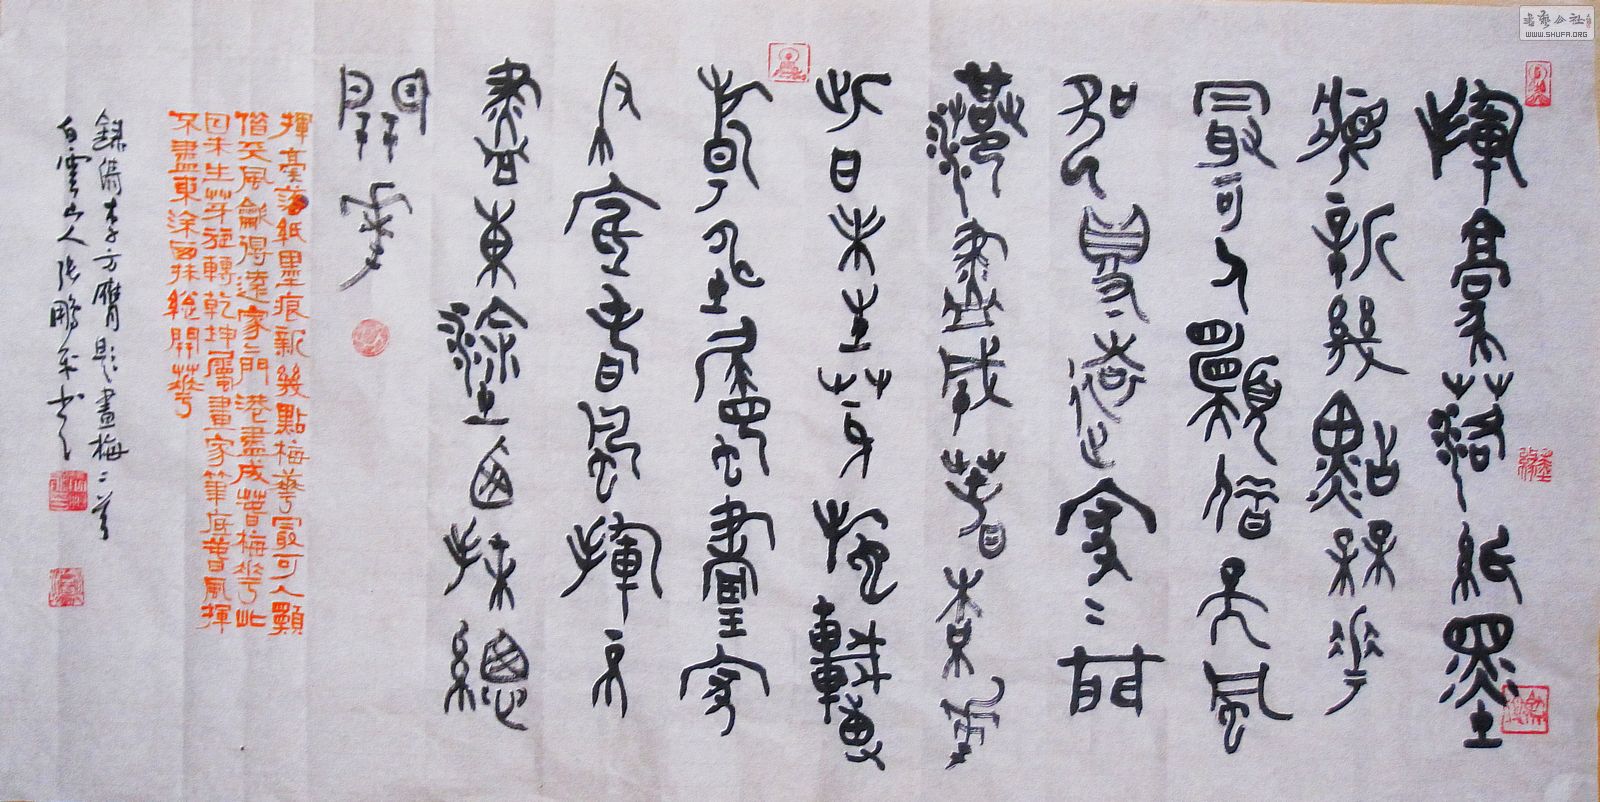 揮毫落紙墨
痕新幾點梅花
最可人願借天風
龡得遠家々門
巷盡成春梅華
此日未生芽旋轉
乾坤屬畫家
筆底春風揮不
盡東塗西抹總
開華
揮毫落紙墨痕新幾點梅華最可人願
借天風龡得遠家々門港盡成春梅花此
日未生芽旋轉乾坤屬畫家筆底春風揮
不盡東涂西抹總開華
錄清李方膺題畫梅二首
白雲山人張鵬平書
書藝公社
WWW.SHUFA.ORG